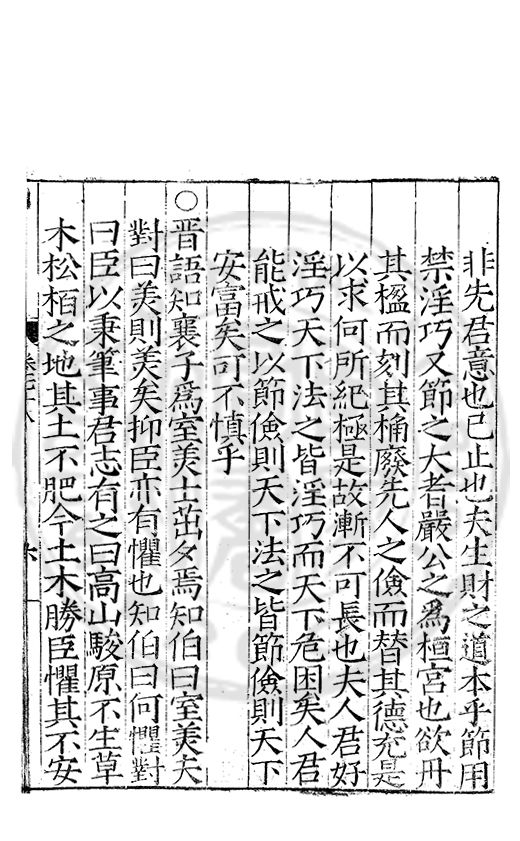 非先君意也已止也夫生財之道本乎節用
禁淫巧又節之大者嚴公之爲桓宮也欲丹
其楹而刻其桷廢先人之儉而替其德充是
以求何所紀極是故漸不可長也夫人君好
淫巧天下法之皆淫巧而天下危困矣人君
能戒之以節儉則天下法之皆節儉則天下
安富矣可不慎乎
○晉語知襄子爲室美士茁夕焉知伯曰室美夫
對曰美則美矣抑臣亦有懼也知伯曰何懼對
曰臣以秉筆事君志有之曰高山駿原不生草
木松栢之地其土不肥今土木勝臣懼其不安